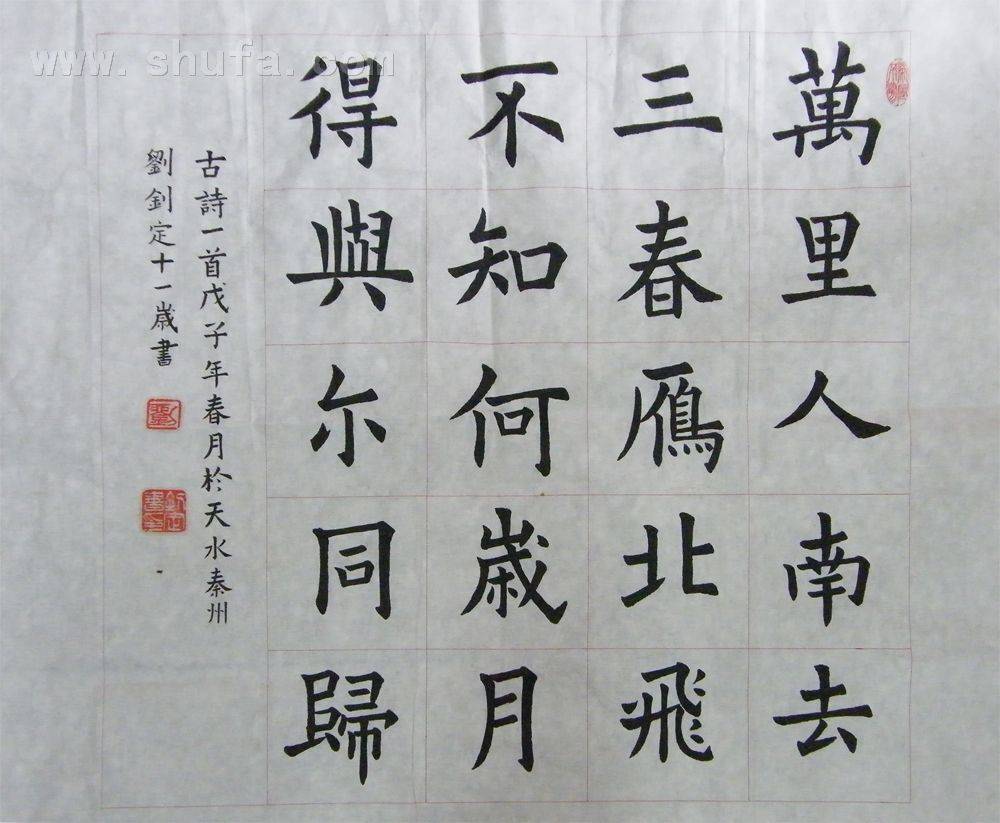 萬里人南去
三春鴈北飛
不知何歲月
得與尔同歸
古詩一首戊子年春月於天水秦州
劉釗定十一歲書
www.shufa.com